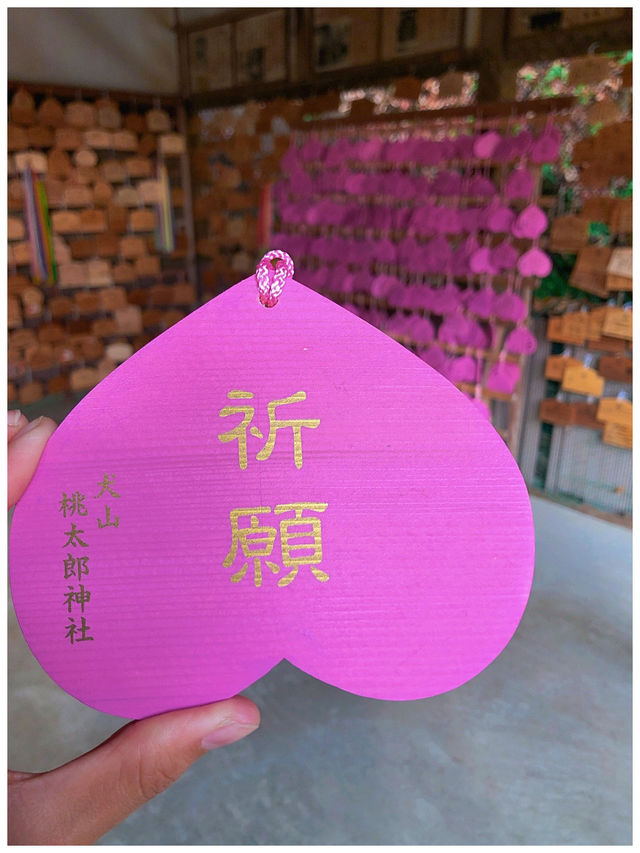 祈願
犬山
桃太郎神社